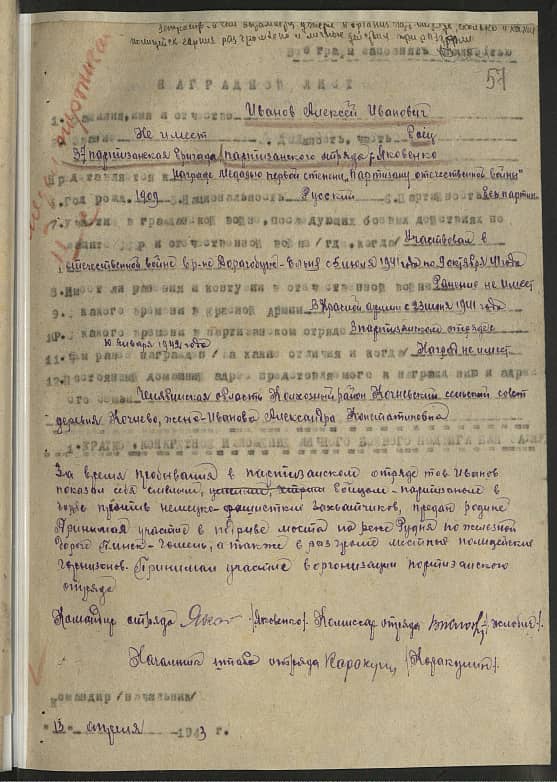 51
НАГРАДНОЙ ЛИСТ
1. Фамилия, имя и отчество Иванов Алексей Иванович
Не имеет должность, часть Боец
37 партизанская бригада партизанского отряда Яковенко
Представляется к награде Медалью первой степени "Партизану отечественной войны"
4. год рожд. 1909 5. Национальность Русский 6. Партийность Без партии
7. Участие в гражданской войне, последующих боевых действиях по
защите и отечественной войне /где, когда/ Участвовал в
отечественной войне в р-не Дорогобуж-Ельня с июля 1941 года по 9 октября 41 года
8. Имеет ли ранения и контузии в отечественной войне Ранения не имеет
9. С какого времени в Красной Армии В Красной армии с 23 июня 1941 года
10. С какого времени в партизанском отряде В партизанском отряде
10 января 1942 года
11. Чем ранее награжден /за какие отличия и когда/ Наград не имеет
12. Постоянный домашний адрес представляемого к награждению и адрес
его семьи Челябинская область Колхозный район Кочневский сельский совет
деревня Кочнево, жена-Иванова Александра Константиновна
1. КРАТКОЕ КОНКРЕТНОЕ ИЗЛОЖЕНИЕ ЛИЧНОГО БОЕВОГО ПОДВИГА ИЛИ
За время пребывания в партизанском отряде тов. Иванов
показал себя смелым, бойцом-партизаном в
борьбе против немецко-фашистких захватчиков, предан родине
Принимал участие в взрыве моста на реке Рудня по железной
дороге Пинск-Гомель, а также в разгроме местных полицейских
гарнизонов. Принимал участие в организации партизанского
отряда
Командир отряда /Яковенко/. Комиссар отряда
Начальник штаба отряда /Каракулин/.
Командир /начальник/
"13" апреля 1943 г.